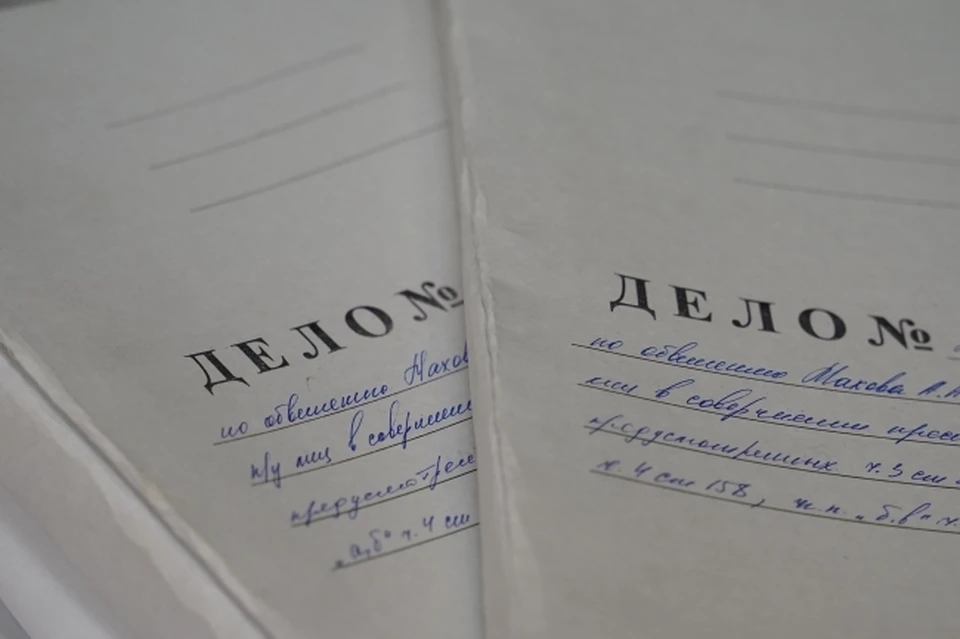 ДЕЛО №
по обвинению Махов
гр/ лиц в совершени
предусмотрен
"а,б" ч. 4 ст
ДЕЛО №
по обвинению Махова А.А
лиц в совершении прес
предусмотренных ч. 3 ст
ч. 4 ст 158, п.п. "б,в" ч.